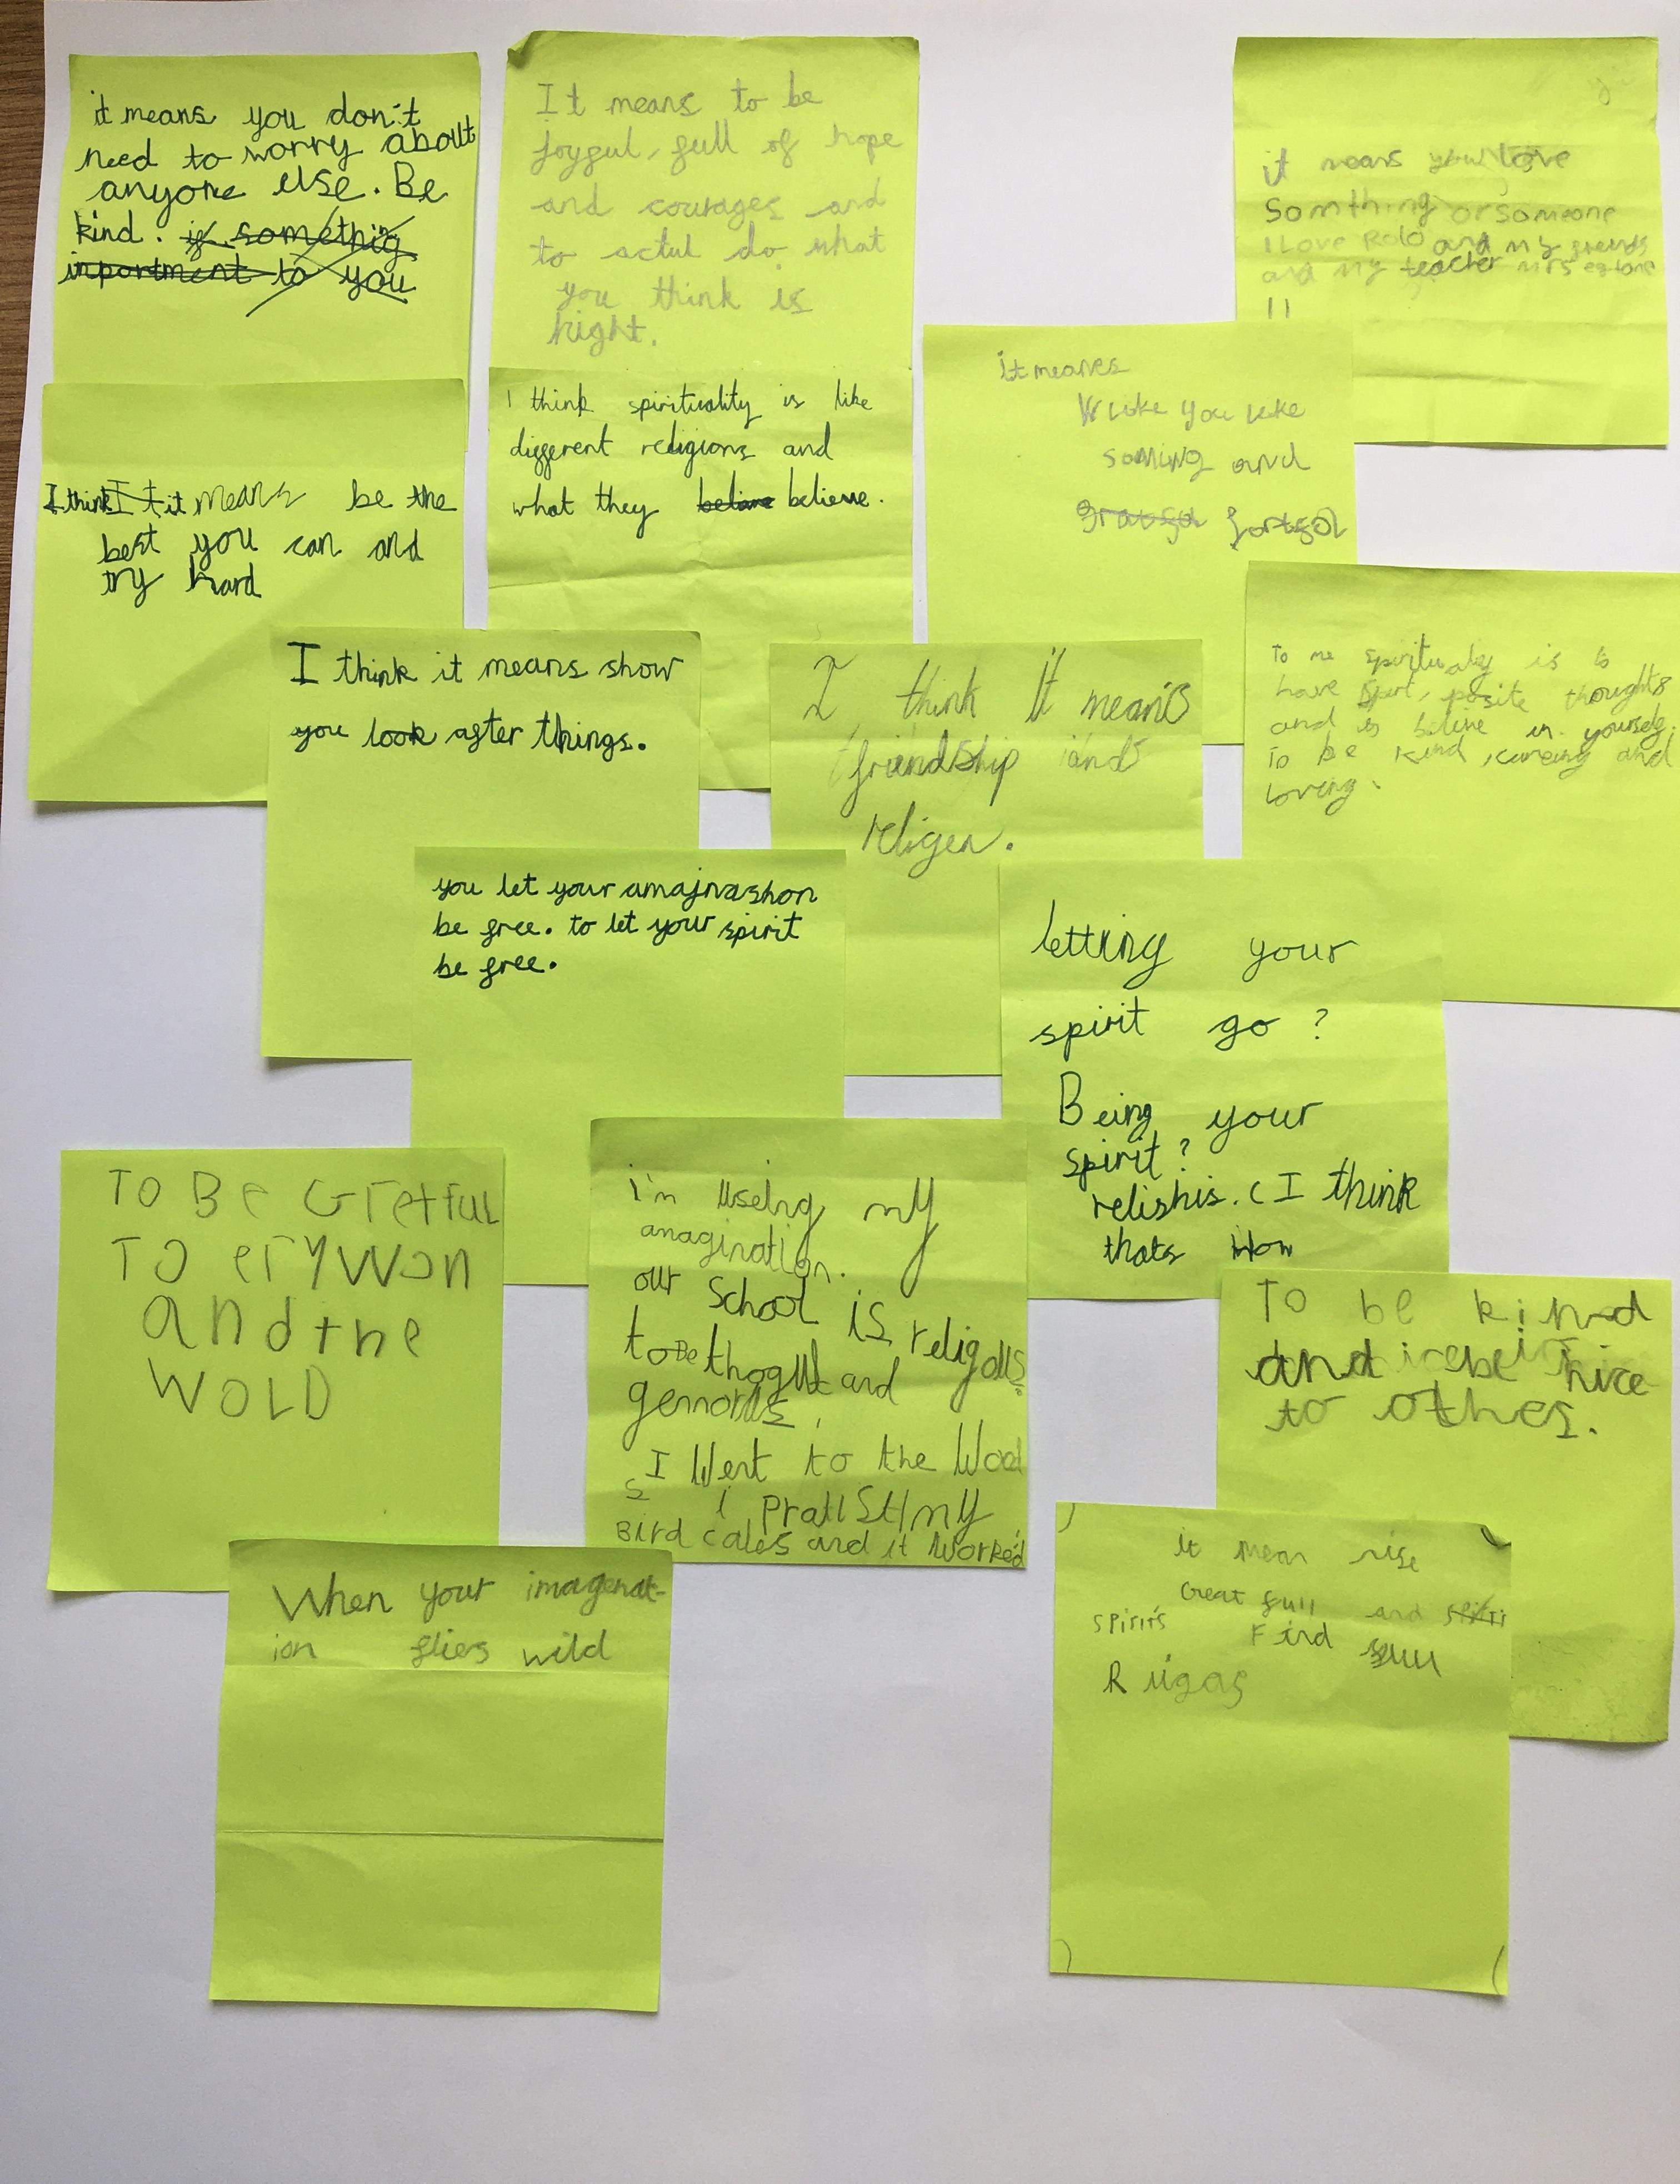 it means you don't
need to worry about
anyone else. Be
kind. if somethig
inportment to you
It means to be
joyful, full of hope
and courages and
to actul do what
you think is
right.
it means you love
Somthing or someone
I Love Rolo and my friends
and my teacher mrs
!!
I think It it means be the
best you can and
try hard
I think spirituality is like
different religions and
what they belave believe.
it meanes
like you like
soming and
gratful
I think it means show
you look after things.
I think It means
friendship and
religen.
To me spiritualy is to
have spirt, posite thoughts
and is belive in yourself,
To be kind, careing and
loving.
you let your amajnashon
be free. to let your spirit
be free.
letting your
spirit go?
Being your
spirit?
relishis. (I think
thats How
TO BE Gretful
TO erywon
and the
WOLD
i'm useing my
anagination.
our School is religous
to Be thogut and
I Went to the Wood
s i Pratisth my
Bird cales and it Worked
To be kind
and be nice
to othes.
When your imagenat-
ion flies wild
it mean
Great full and
spirits Find